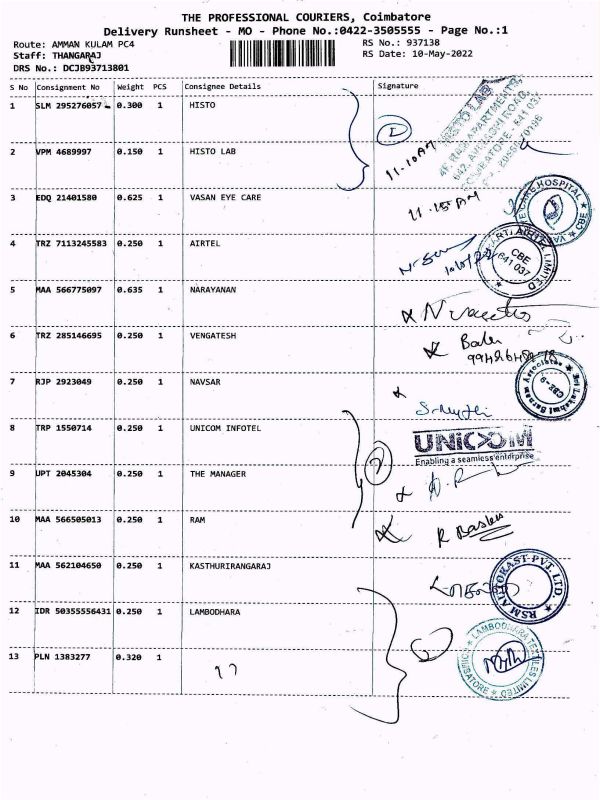 THE PROFESSIONAL COURIERS, Coimbatore
Delivery Runsheet - MO - Phone No.:0422-3505555 - Page No.:1
Route: AMMAN KULAM PC4
RS No.: 937138
Staff: THANGARAJ
RS Date: 10-May-2022
DRS No.: DCJB93713801
S No Consignment No Weight PCS Consignee Details Signature
1 SLM 295276057 0.300 1 HISTO
HISTO LAB
11-10 AM
2 VPM 4689997 0.150 1 HISTO LAB
3 EDQ 21401580 0.625 1 VASAN EYE CARE
11-15 AM
4 TRZ 7113245583 0.250 1 AIRTEL
AIRTEL LIMITED
CBE
641 037
5 MAA 566775097 0.635 1 NARAYANAN
6 TRZ 285146695 0.250 1 VENGATESH
7 RJP 2923049 0.250 1 NAVSAR
CBE-9
8 TRP 1550714 0.250 1 UNICOM INFOTEL
UNICOM
Enabling a seamless enterprise
9 UPT 2045304 0.250 1 THE MANAGER
10 MAA 566505013 0.250 1 RAM
11 MAA 562104650 0.250 1 KASTHURIRANGARAJ
RSM AUTOKAST PVT. LTD.
12 IDR 50355556431 0.250 1 LAMBODHARA
LAMBODHARA TEXTILES LIMITED
COIMBATORE
13 PLN 1383277 0.320 1 ,,